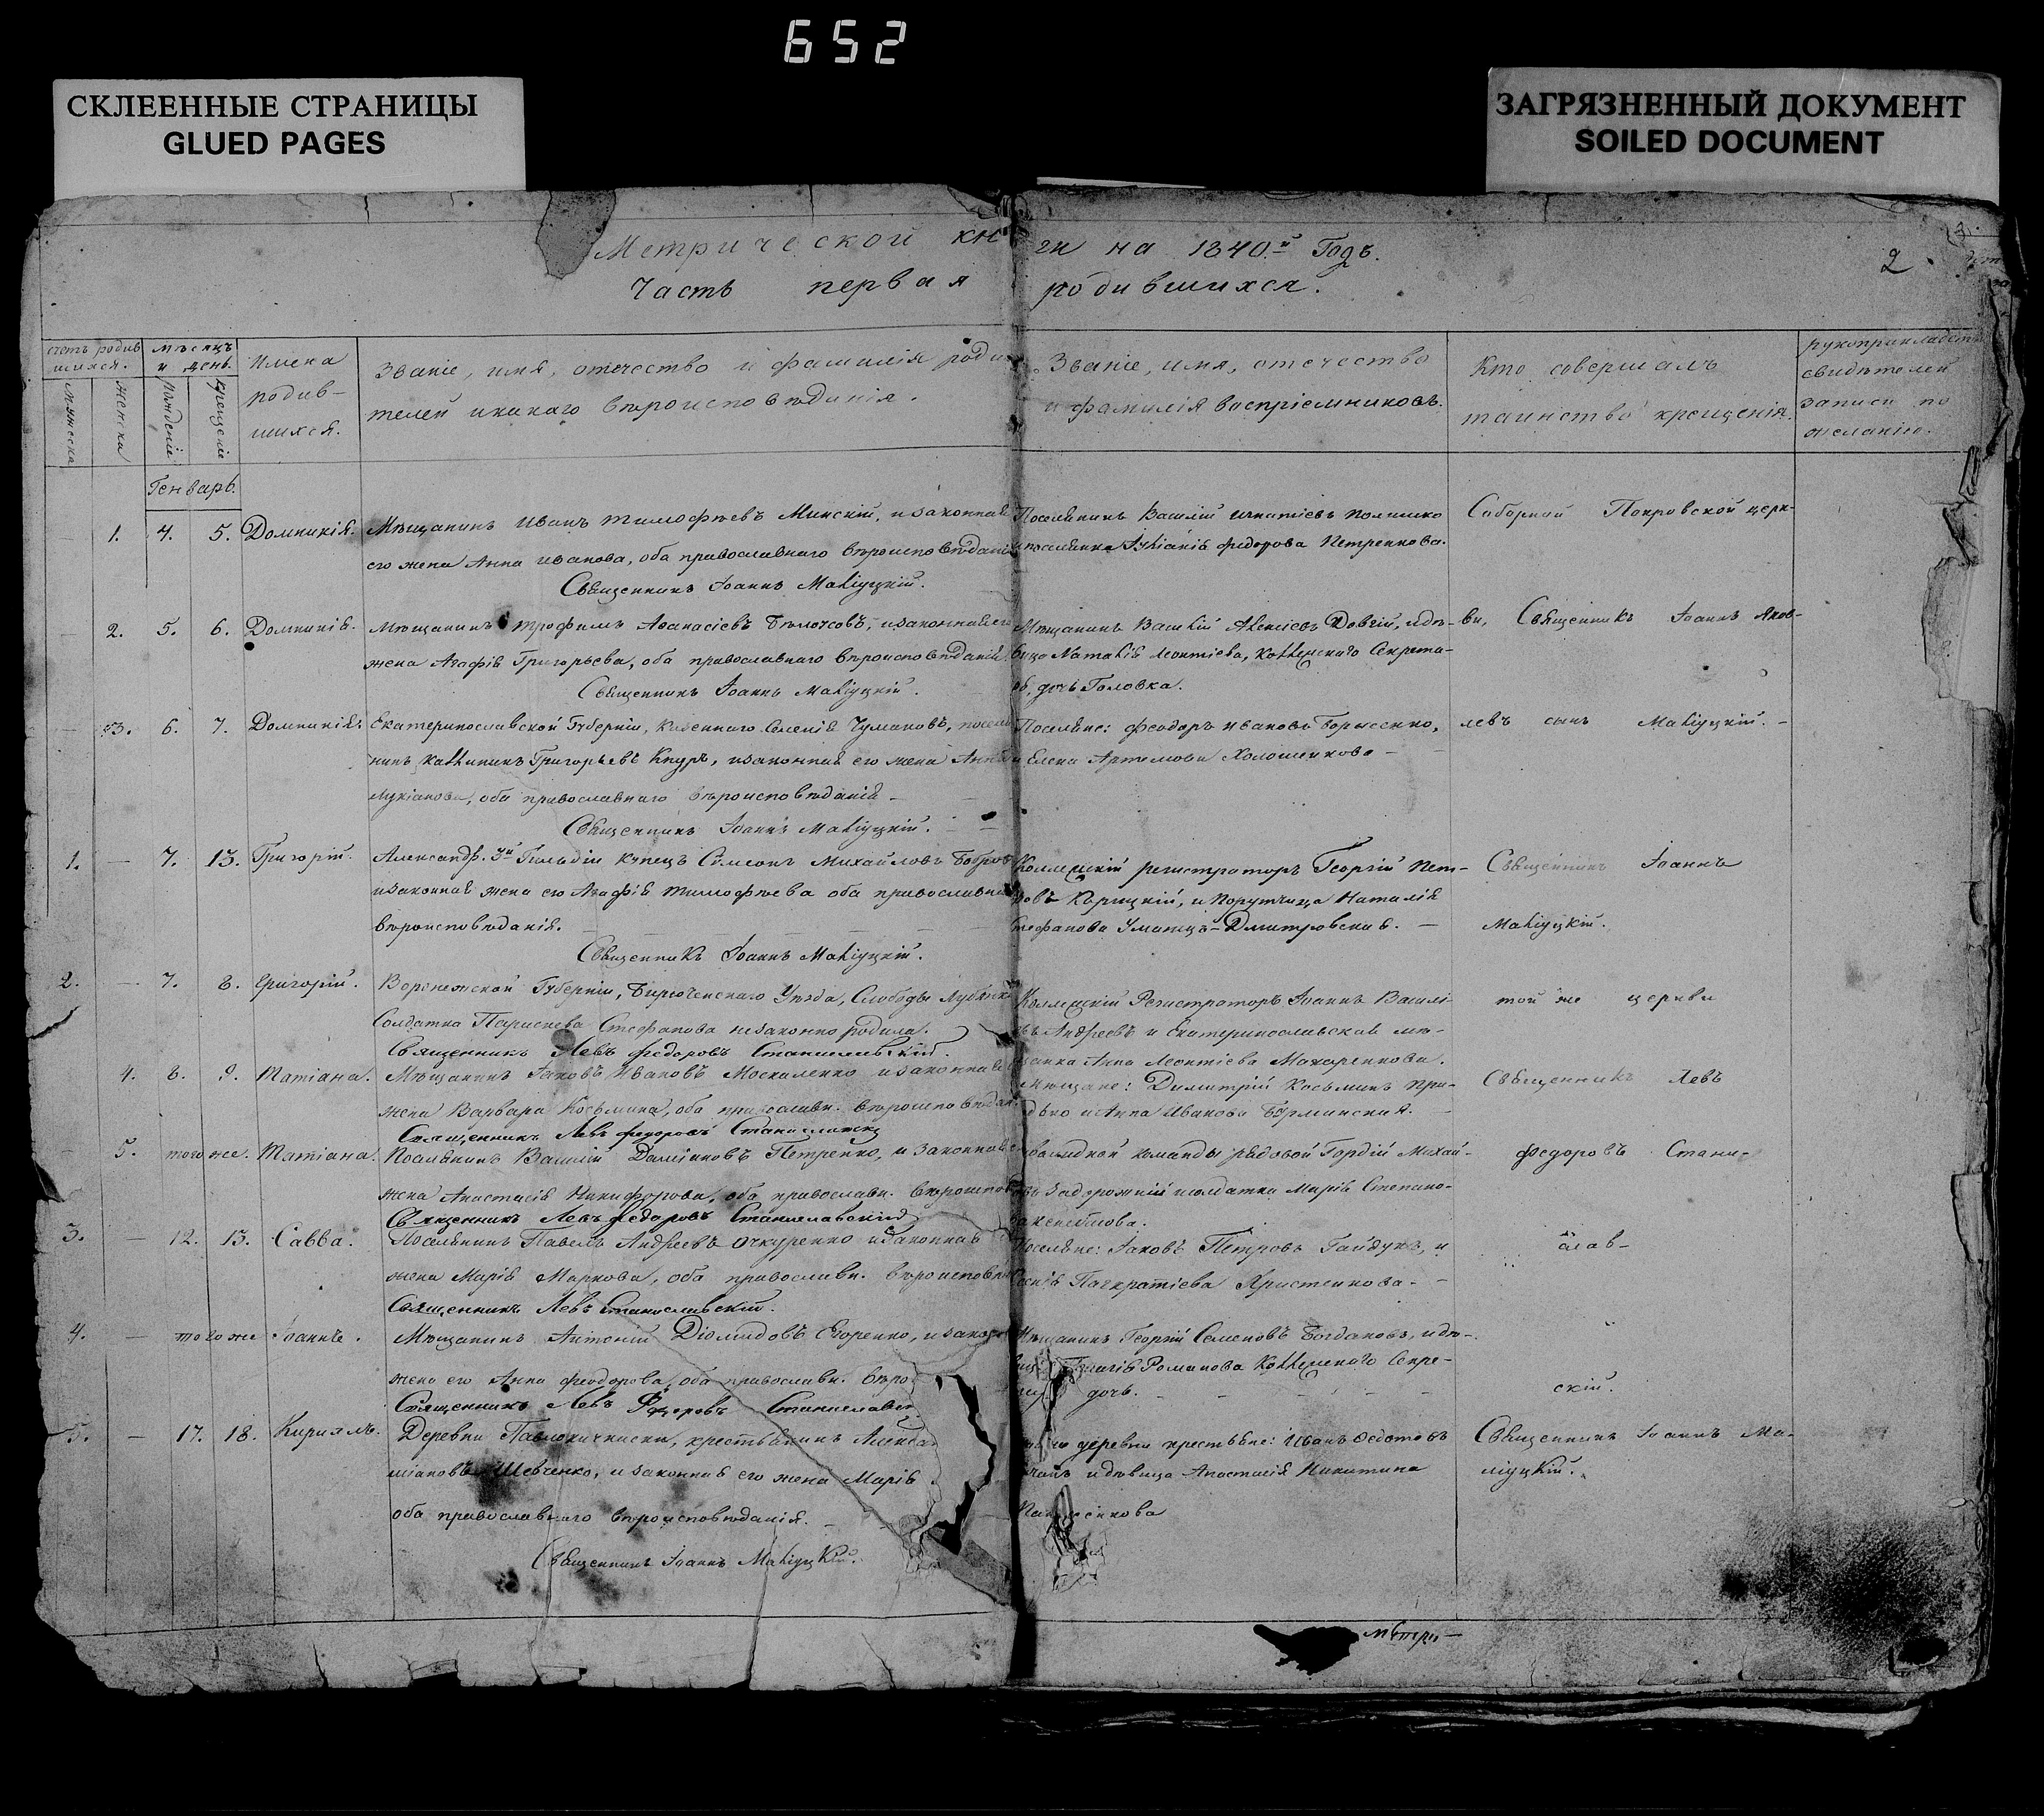 652
СКЛЕЕННЫЕ СТРАНИЦЫ
GLUED PAGES
ЗАГРЯЗНЕННЫЙ ДОКУМЕНТ
SOILED DOCUMENT
Метрической кн ги на 1840.й Годъ.
2
Часть первая родившихся.
счетъ родив
шихся.
мужеска
женска
мѣсяцъ
и день.
рожденіе
крещеніе
Имена
родив-
шихся.
Званіе, имя, отечество и фамилія роди
телей и какаго вѣроисповѣданія.
Званіе, имя, отечество
и фамилія воспріемниковъ.
Кто совершалъ
таинство крещенія.
рукоприкладств
свидѣтелей
записи по
желанію.
Генварь.
1. 4. 5. Домникія. Мѣщанинъ Иванъ Тимофѣевъ Минскій, и законная
его жена Анна Иванова, оба православнаго вѣроисповѣданія
Священникъ Іоаннъ Маліуцкій.
Поселянинъ Василій Игнатіевъ
и поселянка Іуліанія Федорова Петренкова.
Соборной Покровской церк-
2. 5. 6. Домникія. Мѣщанинъ Трофимъ Аѳанасіевъ Бѣлоусовъ, и законная его
жена Агафія Григорьева, оба православнаго вѣроисповѣданія
Священникъ Іоаннъ Маліуцкій.
Мѣщанинъ Василій Алексіевъ Довгій, и дѣ-
вица Наталія Леонтіева, Коллежскаго Секрета-
ря, дочь Головка.
ви, Священникъ Іоаннъ Яков-
3. 6. 7. Домникія. Екатеринославской Губерніи, Казеннаго Селенія Чумаковъ, поселя
нинъ Каллиникъ Григорьевъ Кнуръ, и законная его жена Анна
Лукіанова, оба православнаго вѣроисповѣданія
Священникъ Іоаннъ Маліуцкій.
Поселяне: Феодоръ Ивановъ Борисенко,
и Елена Артемова
левъ сынъ Маліуцкій.
1. 7. 13. Григорій. Александр. 3й Гильдіи купецъ Симеонъ Михайловъ Бобров
и законная жена его Агафія Тимофѣева оба православнаго
вѣроисповѣданія.
Священникъ Іоаннъ Маліуцкій.
Коллежскій регистраторъ Георгій Пет-
ровъ и Порутчица Наталія
Стефанова Уманецъ-Дмитровская.
Священникъ Іоаннъ
Маліуцкій.
2. 7. 8. Григорій. Воронежской Губерніи, Бирюченскаго Уѣзда, Слободы
Солдатка Стефанова незаконно родила.
Священникъ Левъ Федоровъ Станиславскій.
Коллежскій Регистраторъ Іоаннъ Василі-
евъ Андреевъ и Екатеринославская мѣ-
щанка Анна Леонтіева Макаренкова.
той же церкви
4. 8. 9. Татіана. Мѣщанинъ Іаковъ Ивановъ Москаленко и законная
жена Варвара Козьмина, оба православн. вѣроисповѣдан.
Священникъ Левъ Федоровъ Станиславскій
Мѣщане: Димитрій Косьминъ При-
дько и Анна Иванова
Священникъ Левъ
5. того же. Татіана. Поселянинъ Василій Даміановъ Петренко, и законная
жена Анастасія Никифорова, оба православн. вѣроисповѣ
Священникъ Левъ Федоровъ Станиславскій
команды рядовой Гордій Михай-
Задорожній и солдатка Марія Степано-
Федоровъ Стани-
3. 12. 13. Савва. Поселянинъ Павелъ Андреевъ Очкуренко и законная
жена Марія Маркова, оба православн. вѣроисповѣ
Священникъ Левъ Станиславскій.
Поселяне: Іаковъ Петровъ Гайдукъ, и
Панкратіева Христенкова.
слав-
4. того же Іоаннъ. Мѣщанинъ Антоній Діомидовъ Егоренко, и закон
жена его Анна Феодорова, оба православн. вѣро
Священникъ Левъ Федоровъ Станиславск
Мѣщанинъ Георгій Семеновъ Богдановъ, и дѣ-
Романова Коллежскаго Секре-
дочь.
скій.
5. 17. 18. Кириллъ. Деревни крестьянинъ
Шевченко, и законная его жена Марія
оба православнаго вѣроисповѣданія.
Священникъ Іоаннъ Маліуцкій.
деревни крестьяне: Иванъ Федотовъ
и дѣвица Анастасія Никитина
Священникъ Іоаннъ Ма-
ліуцкій.
Метри-